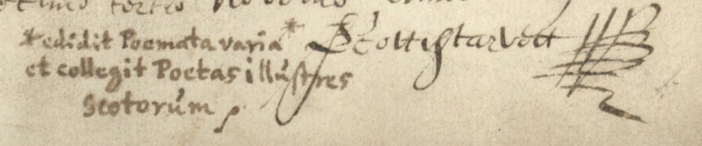 tertio
*edidit Poemata varia* Scottistarvett
et collegit Poetas illustres
Scotorum